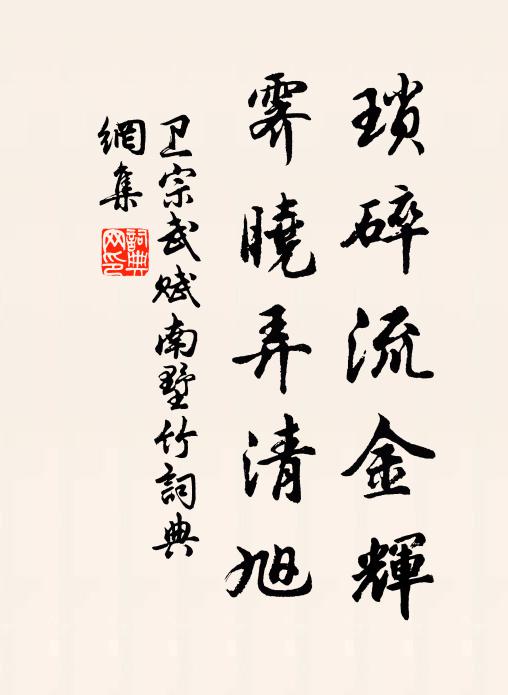 瑣碎流金輝
霽曉弄清旭
卫宗武賦南墅竹詞典
網集
詞典網印